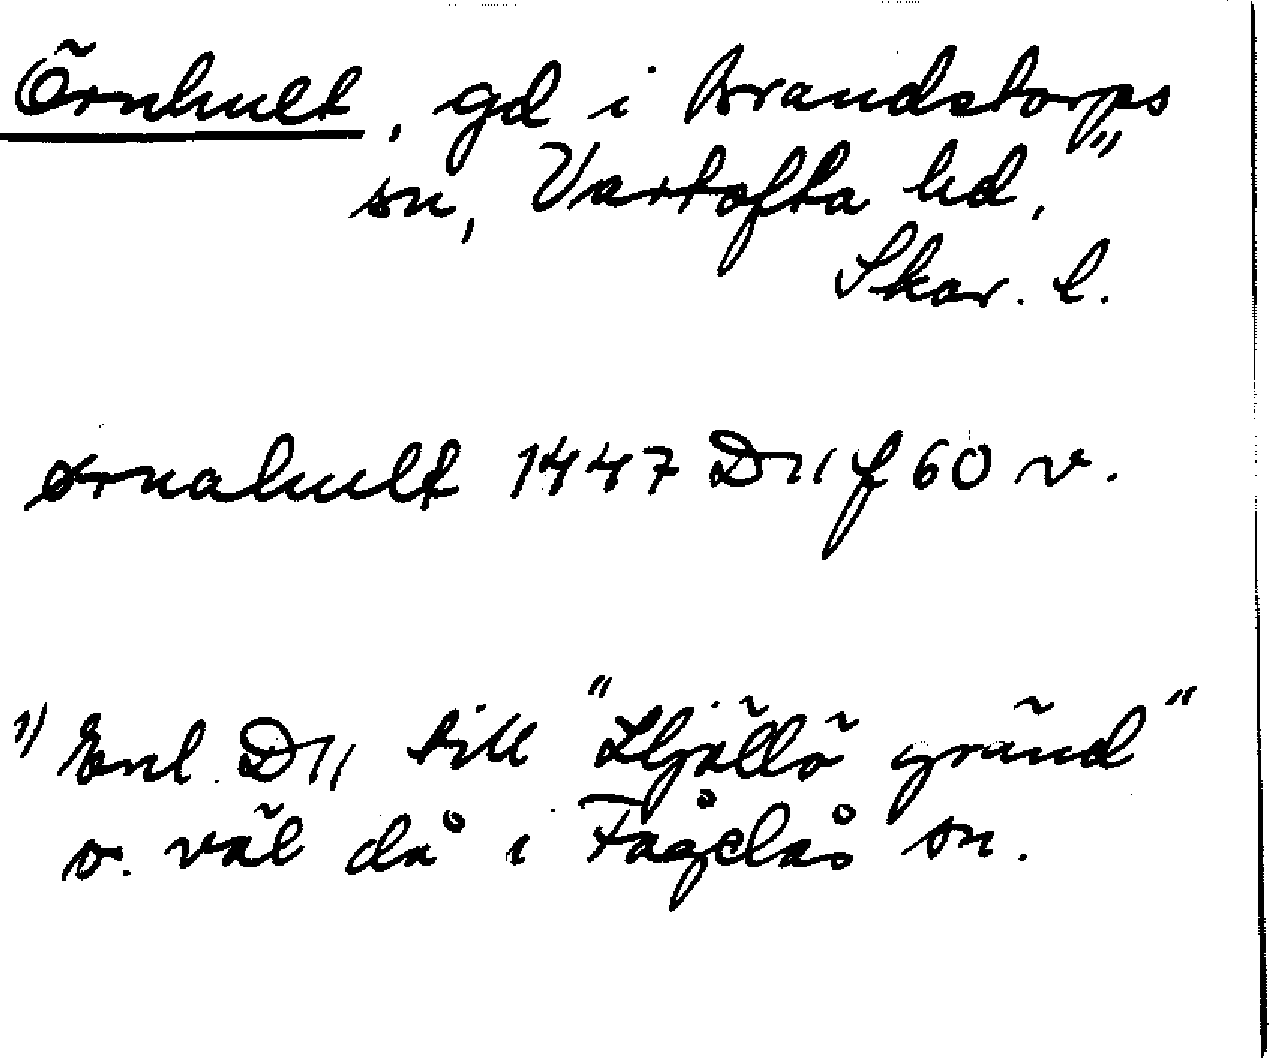 Örnhult, gd i Brandstorps
sn, ¹⁾ Vartofta hd,
Skar. l.
ørnahult 1447 D11 f 60 v.
1) Enl. D11 till "Hjällö gränd"
o. väl då i Fågelås sn.